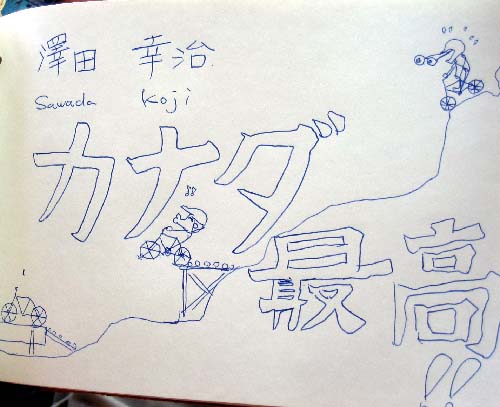 澤田 幸治
Sawada Koji
カナダ
最高!!